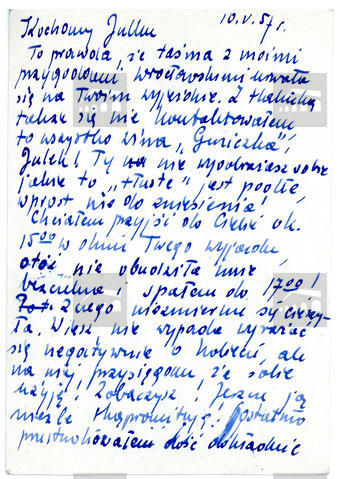 10.V.57 r.
Kochany Julku
To prawda, że taśma z moimi
przygodami wrocławskimi urwała
się na Twoim wyjeździe. Z Haliczką
także się nie kontaktowałem
to wszystko wina „Guziczka",
Julek! Ty nie wyobrażasz sobie
jakie to „tłuste" jest podłe,
wprost nie do zniesienia.
Chciałem przyjść do Ciebie ok.
15⁰⁰ w dniu Twego wyjazdu,
otóż nie obudziła mnie,
bezczelna i spałem do 17⁰⁰!
Z czego niezmiernie się cieszy-
ła. Wiesz nie wypada wyrażać
się negatywnie o kobiecie, ale
na niej, przysięgam, że sobie
użyję! Zobaczysz! Jeszcze ją
nieźle skompromituję! Ostatnio
przestudiowałem dość dokładnie